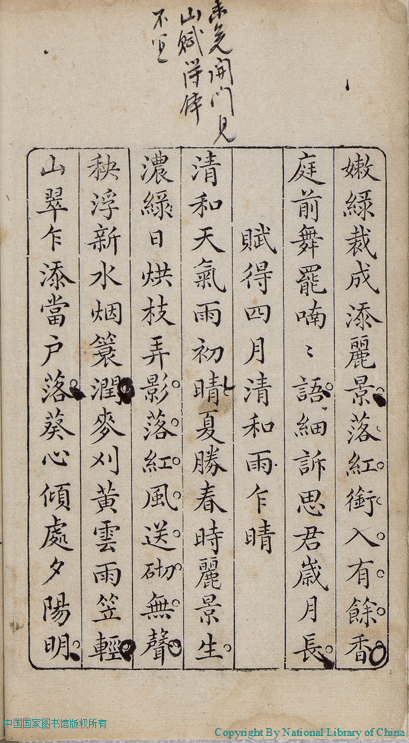 未免開門見
山賦得体
不宜
嫩綠裁成添麗景落紅銜入有餘香
庭前舞罷喃〻語細訴思君歲月長
賦得四月清和雨乍晴
清和天氣雨初晴夏勝春時麗景生
濃綠日烘枝弄影落紅風送砌無聲
秧浮新水烟簑潤麥刈黃雲雨笠輕
山翠乍添當戶落葵心傾處夕陽明
中国国家图书馆版权所有
Copyright By National Library of China